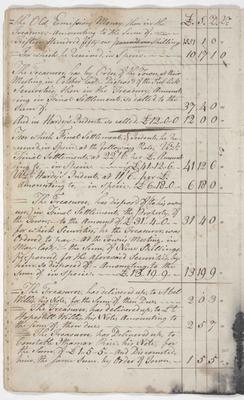 £. S. D.
Old Emission Money then in the
Treasury Amounting to the Sum of
Sixteen Hundred fifty one pounds one shilling 1651 1 0
For which he received in Specie 10 17 10
The Treasurer has by Order of the Town, at their
Meeting in disposed of the Publick
Securities then in the Treasury Amount
ing in Final Settlements so called to the
Sum of 37 4 0
And in Hardy's Indents so called £12.0.0 12 0 0
For which Final Settlements, & Indents, he Re-
ceived in Specie at the following Rate, Viz
Final Settlements at
in Specie £41.12.6 41 12 6
Hardy's Indents at pr £
Amounting to in Specie £6.12.0 6 12 0
The Treasurer has disposed of to his own
use in Final Settlements the Property of
the Town to the Amount of £31.4.0 31 4 0
for which Securities he the Treasurer was
Ordered to pay at the Town's Meeting in
the Sum of Nine Shillings
pr pound for the aforesaid Securities by
him so disposed of Amounting to the
Sum of in Specie £13.19.9 13 19 9
The Treasurer has delivered up to Abel
Willis his Note, for the Sum of then Due 2 0 3
The Treasurer has delivered up to
Hopestill Willis his Note Amounting to
the Sum of then due 2 5 7
The Treasurer has Delivered up to
Constable his Note for
the Sum of £1.5.5 And Discounted
the same Sum by Order of Town 1 5 5